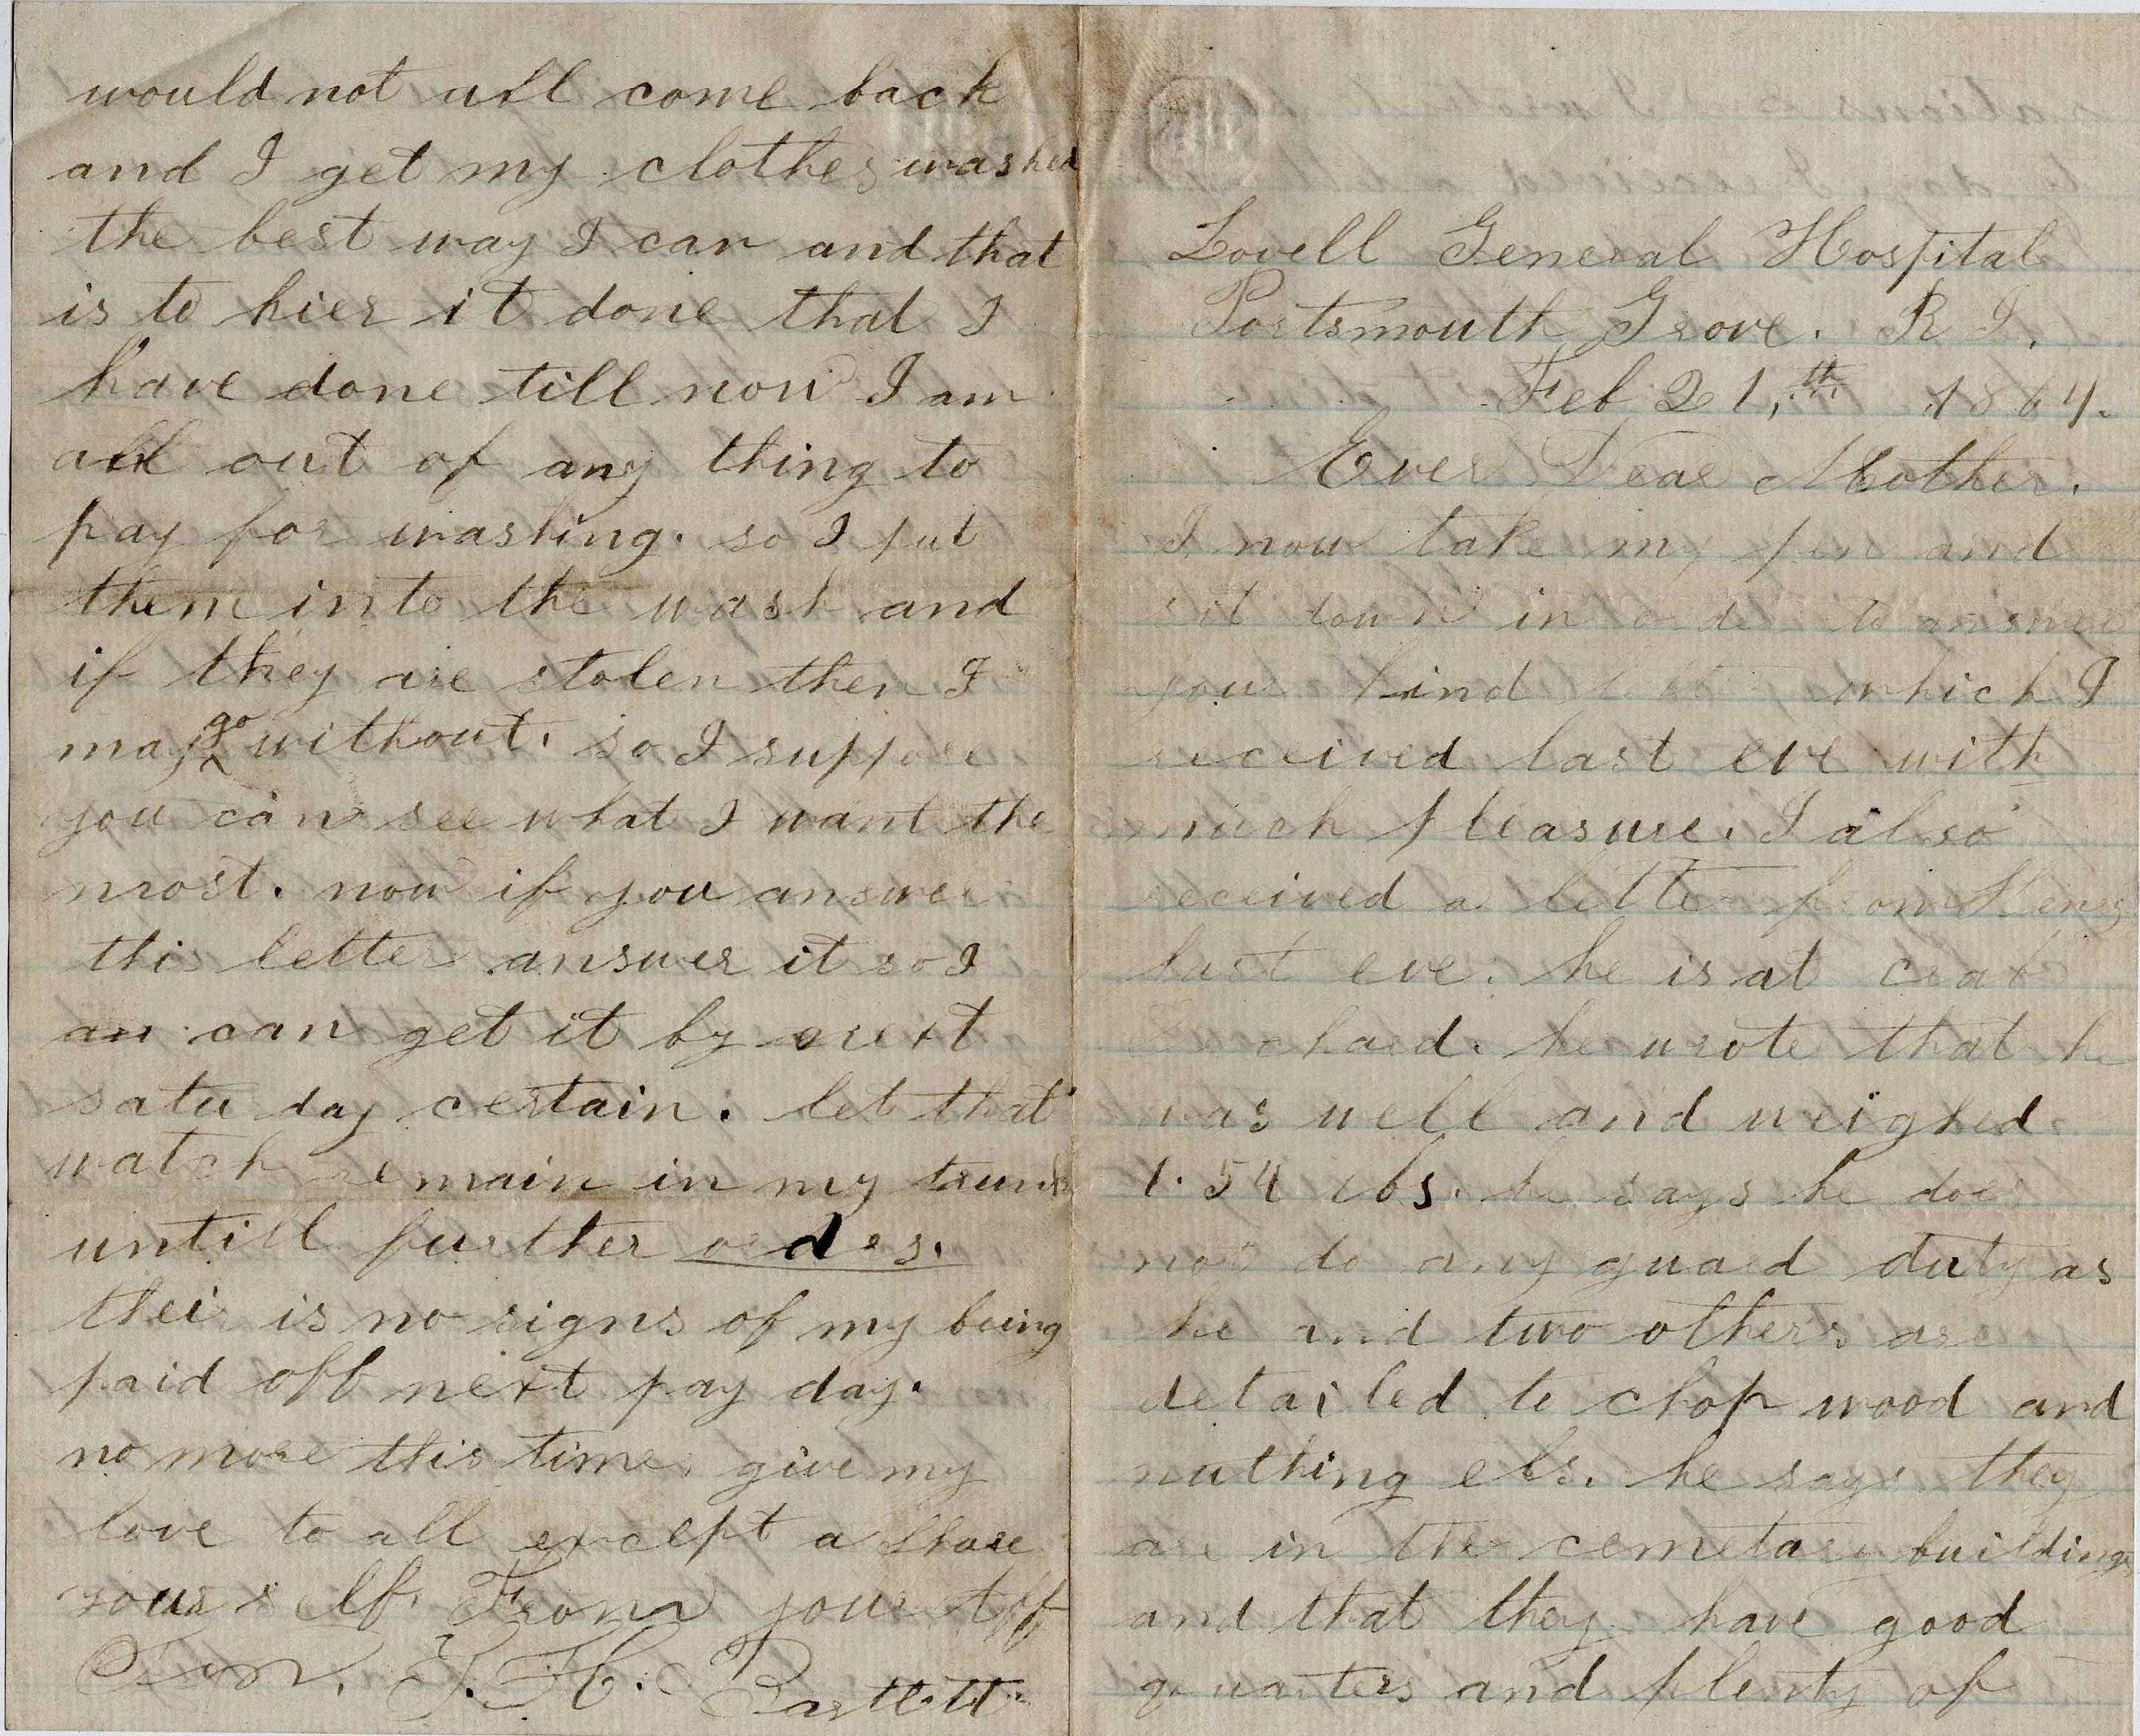 would not all come back
and I get my clothes washed
the best way I can and that
is to hier it done that I
have done till now I am
all out of any thing to
pay for washing. so I put
them into the wash and
if they are stolen then I
may go without. so I suppose
you can see what I want the
most. now if you answer
this letter answer it so I
an can get it by next
saturday certain. let that
watch remain in my trunk
untill further orders.
their is no signs of my being
paid off next pay day.
no more this time, give my
love to all except a share
your self. From your aff
Son. T. H. Bartlett
Lovell General Hospital
Portsmouth Grove. R I.
Feb 21,th 1864.
Ever Dear Mother.
I now take my pen and
sit down in order to answer
your kind letter, which I
received last eve with
much pleasure. I also
received a letter from Henry
last eve. he is at crab
orchard. he wrote that he
was well and weighed
1.54 lbs. he says he does
not do any guard duty as
he and two others are
detailed to chop wood and
nuthing els. he says they
are in the cemetary buildings
and that they have good
quarters and plenty of